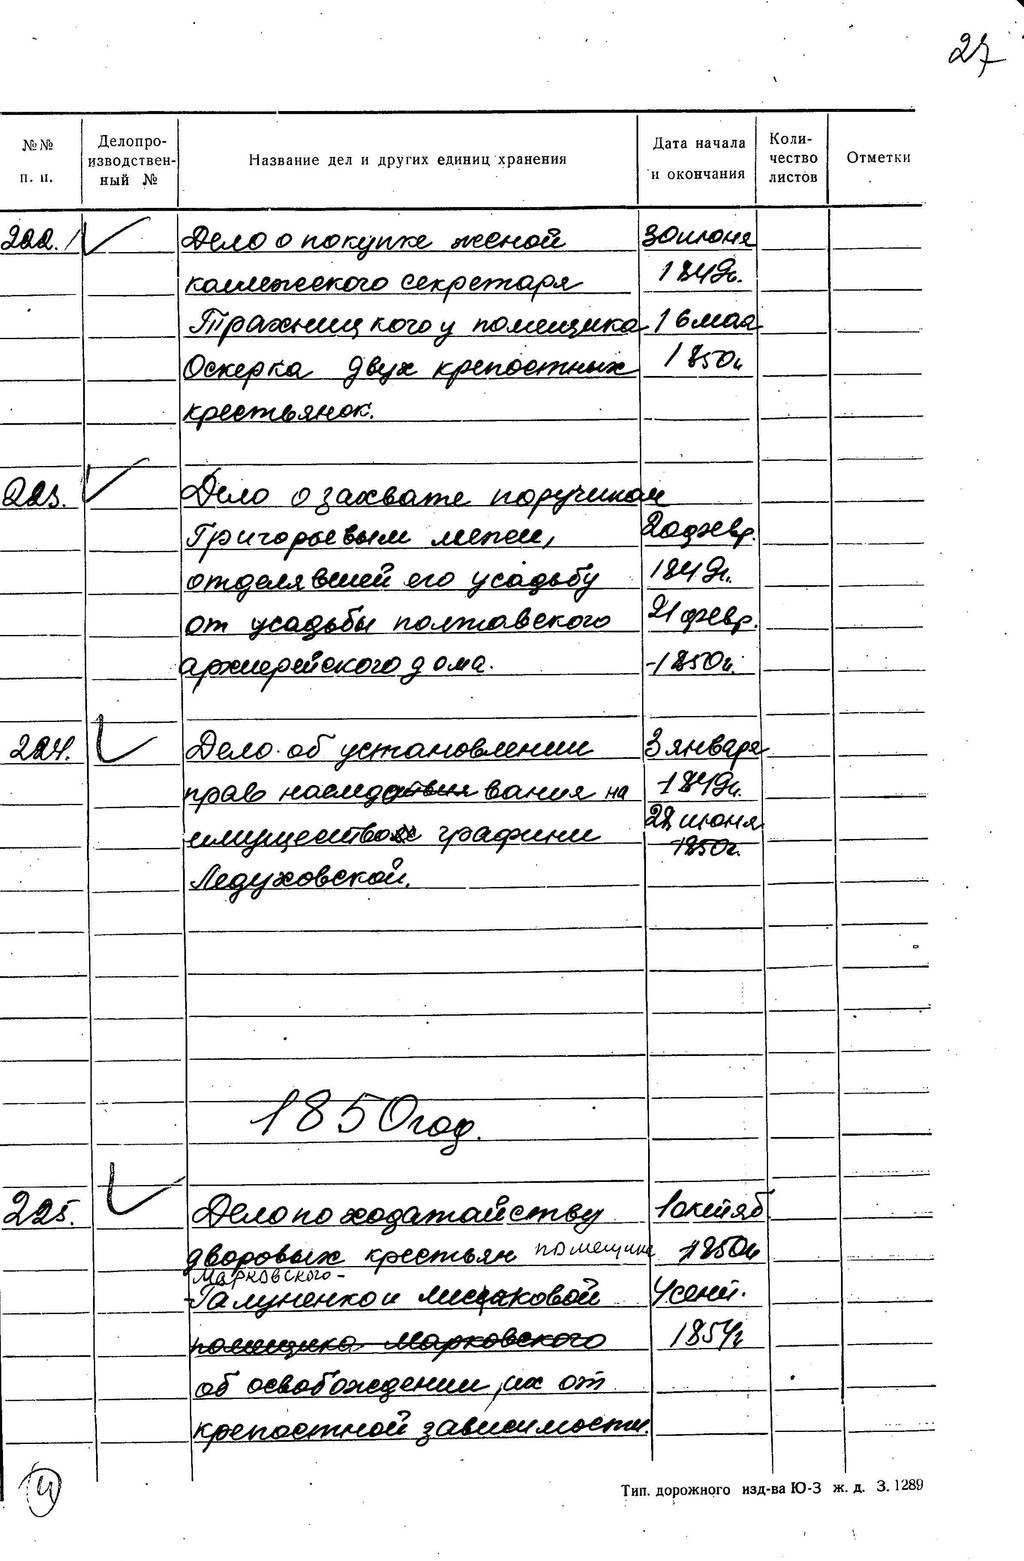 27
№№ п. п.
Делопро-изводствен-ный №
Название дел и других единиц хранения
Дата начала и окончания
Коли-чество листов
Отметки
222. Дело о покупке женой 30 июня
коллежского секретаря 1849г.
Тражницкого у помещика 16 мая
Оскерка двух крепостных 1850г
крестьянок.
223. Дело о захвате поручиком
Григорьевым межи, 20 февр.
отделявшей его усадьбу 1849г.
от усадьбы полтавского 21 февр.
архиерейского дома. 1850г.
224. Дело об установлении 3 января
прав наследования на 1849г.
имущество графини 22 июня
Ледуховской. 1850г.
1850 год.
225. Дело по ходатайству 1 октяб
дворовых крестьян помещика 1850г
Марковского-
Галуненко и Лисаковой 4 сент.
помещика Марковского 1854г
об освобождении их от
крепостной зависимости.
4
Тип. дорожного изд-ва Ю-З ж. д. З. 1289